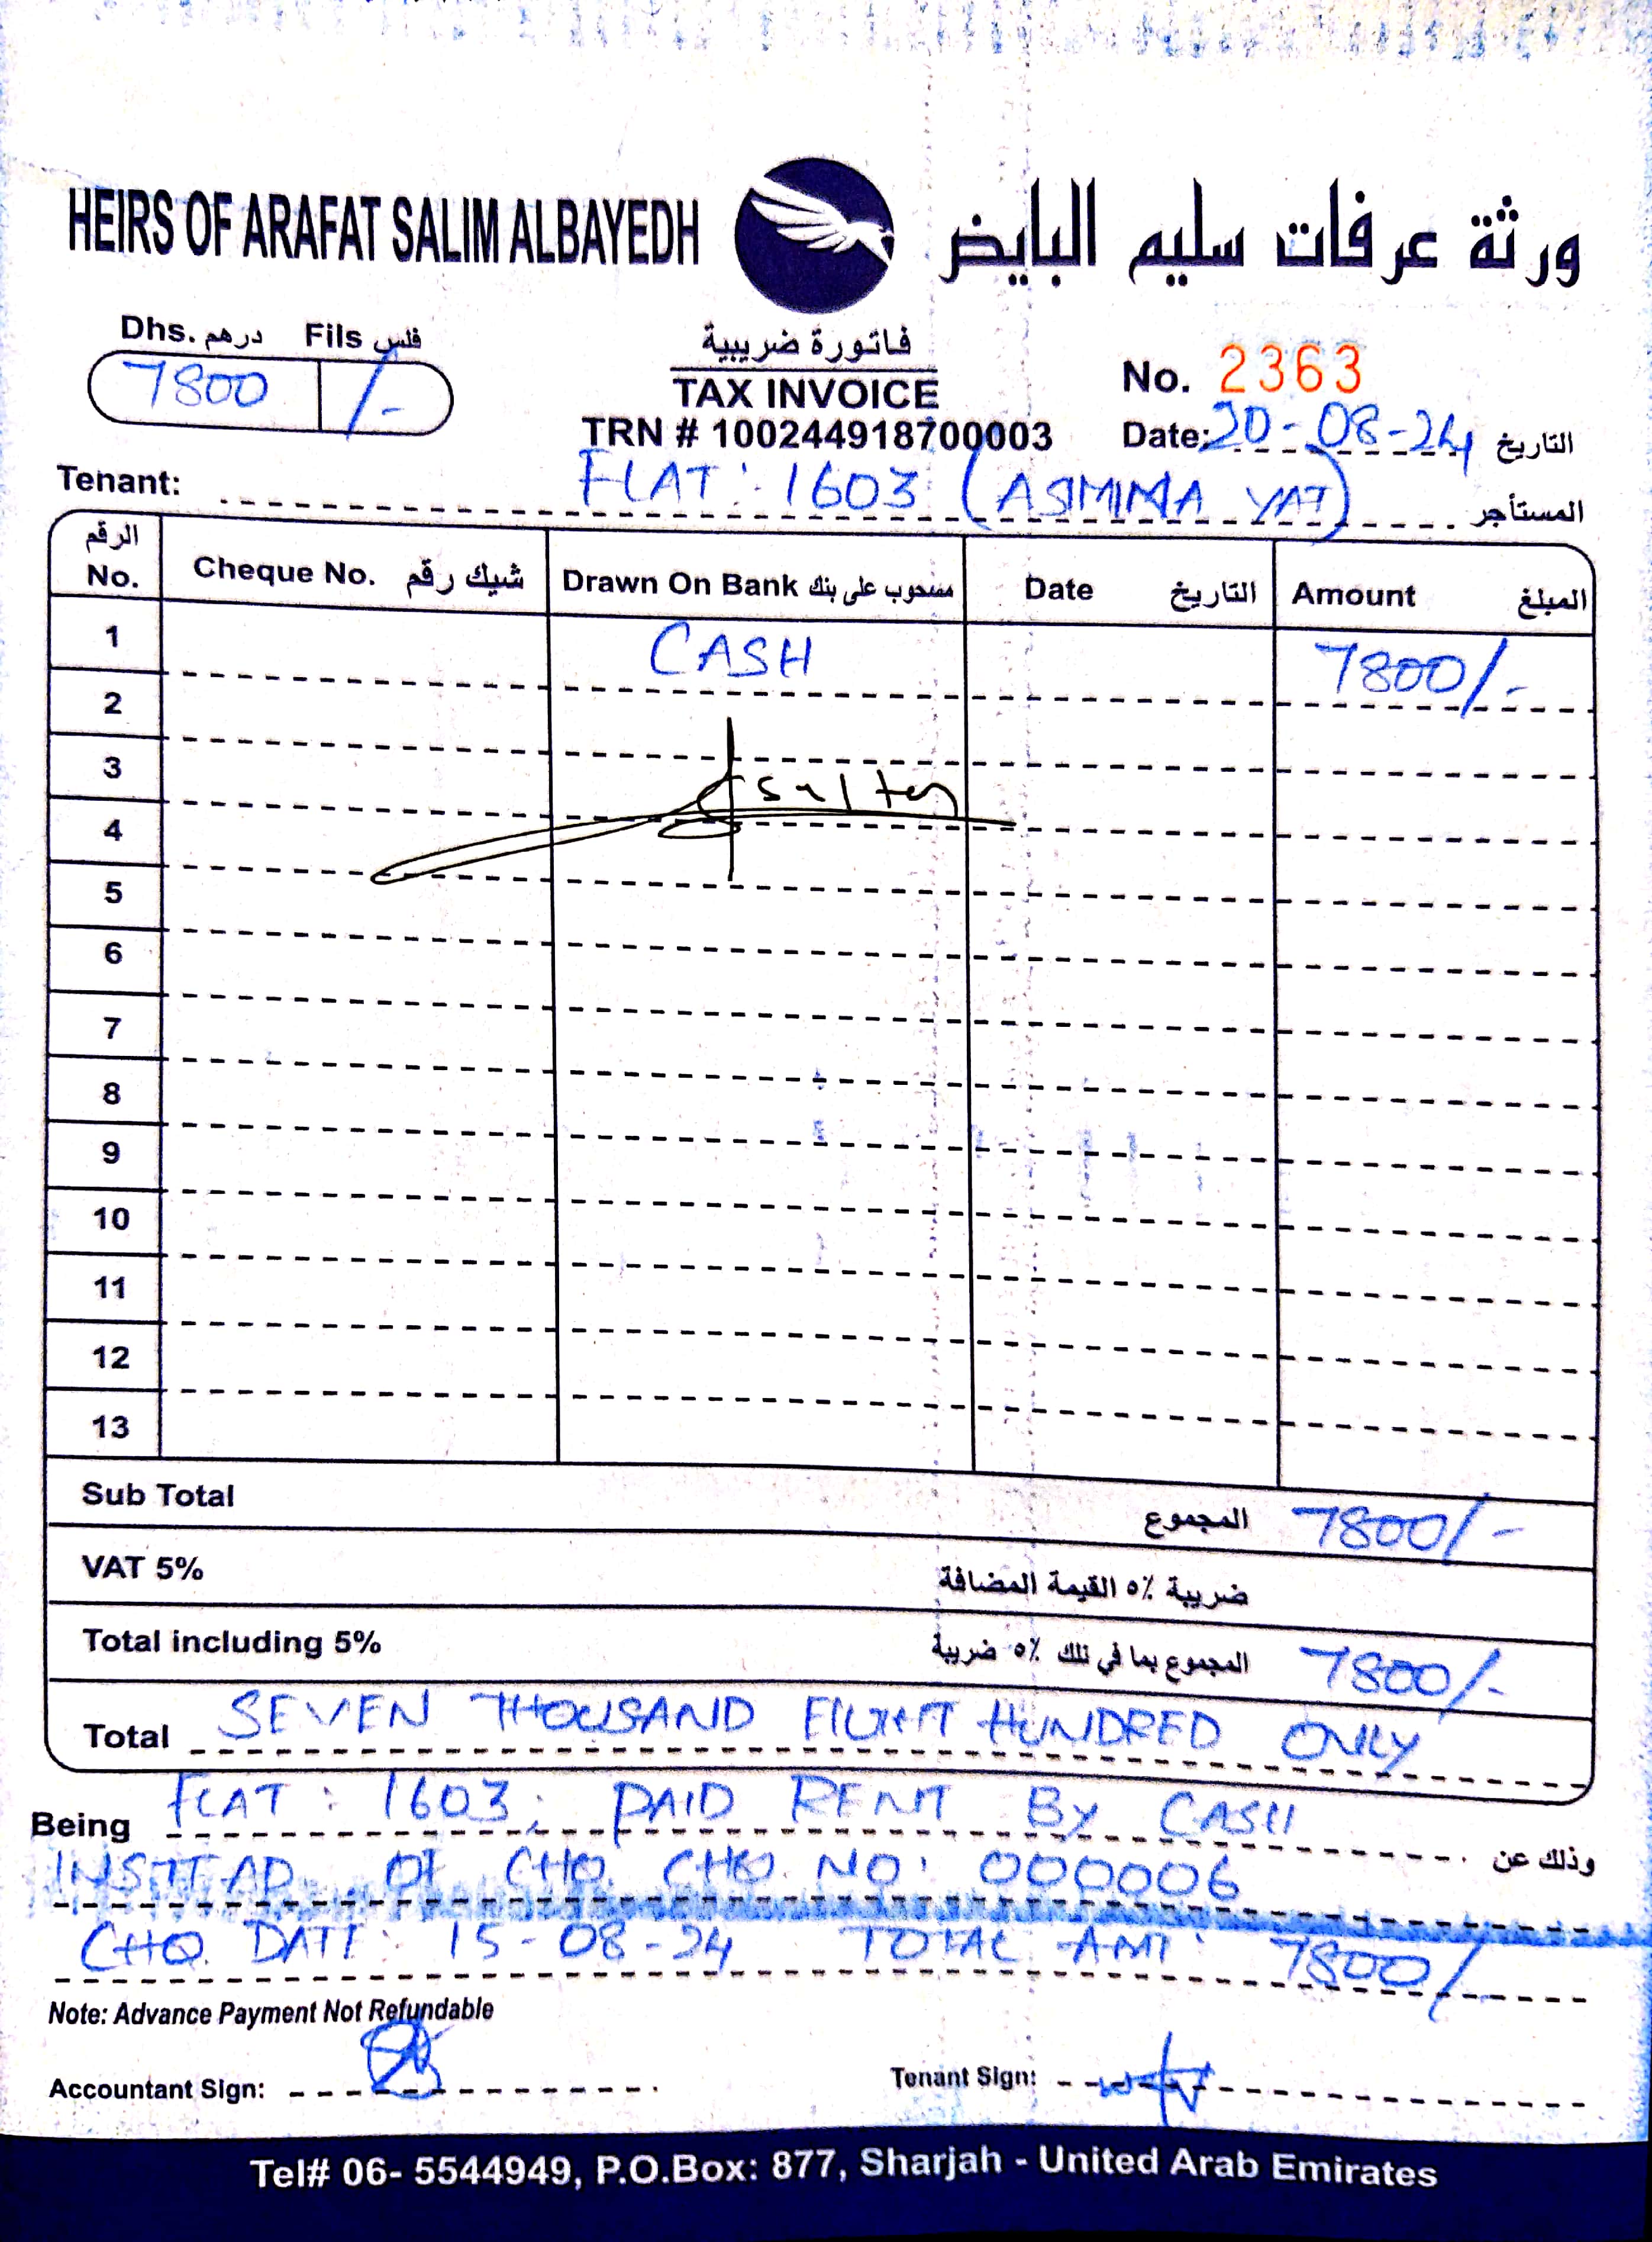 HEIRS OF ARAFAT SALIM ALBAYEDH ورثة عرفات سليم البايض
Dhs. درهم Fils فلس
7800 /-
فاتورة ضريبية
TAX INVOICE
TRN # 100244918700003
No. 2363
Date: 20-08-24 التاريخ
Tenant: FLAT : 1603 (ASMIMA YAT) المستأجر
الرقم No. Cheque No. شيك رقم Drawn On Bank مسحوب على بنك Date التاريخ Amount المبلغ
1 CASH 7800/-
2
3
4
5
6
7
8
9
10
11
12
13
Sub Total المجموع 7800/-
VAT 5% ضريبة ٥٪ القيمة المضافة
Total including 5% المجموع بما في تلك ٥٪ ضريبة 7800/-
Total SEVEN THOUSAND EIGHT HUNDRED ONLY
Being FLAT : 1603, PAID RENT BY CASH وذلك عن
INSTEAD OF CHQ. CHQ. NO: 000006
CHQ. DATE: 15-08-24 TOTAL AMT: 7800/-
Note: Advance Payment Not Refundable
Accountant Sign: Tenant Sign:
Tel# 06- 5544949, P.O.Box: 877, Sharjah - United Arab Emirates